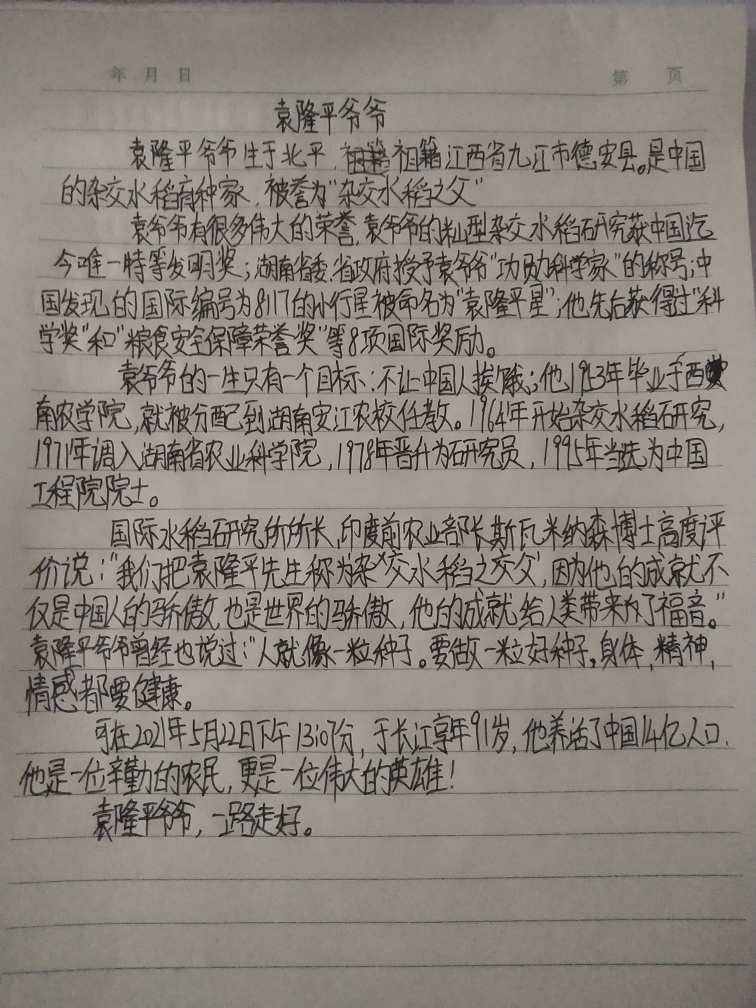 年 月 日 第 页
袁隆平爷爷
袁隆平爷爷生于北平,祖籍江西省九江市德安县。是中国
的杂交水稻育种家,被誉为"杂交水稻之父"
袁爷爷有很多伟大的荣誉,袁爷爷的籼型杂交水稻研究获中国迄
今唯一特等发明奖;湖南省委、省政府授予袁爷爷"功勋科学家"的称号;中
国发现的国际编号为8117的小行星被命名为"袁隆平星";他先后获得过"科
学奖"和"粮食安全保障荣誉奖"等8项国际奖励。
袁爷爷的一生只有一个目标:不让中国人挨饿;他1953年毕业于西
南农学院,就被分配到湖南安江农校任教。1964年开始杂交水稻研究,
1971年调入湖南省农业科学院,1978年晋升为研究员,1995年当选为中国
工程院院士。
国际水稻研究所所长,印度前农业部长斯瓦米纳森博士高度评
价说:"我们把袁隆平先生称为'杂交水稻之父',因为他的成就不
仅是中国人的骄傲,也是世界的骄傲,他的成就给人类带来了福音。"
袁隆平爷爷曾经也说过:"人就像一粒种子。要做一粒好种子,身体,精神,
情感都要健康。
可在2021年5月22日下午13:07分,于长江享年91岁,他养活了中国14亿人口.
他是一位辛勤的农民,更是一位伟大的英雄!
袁隆平爷爷,一路走好。